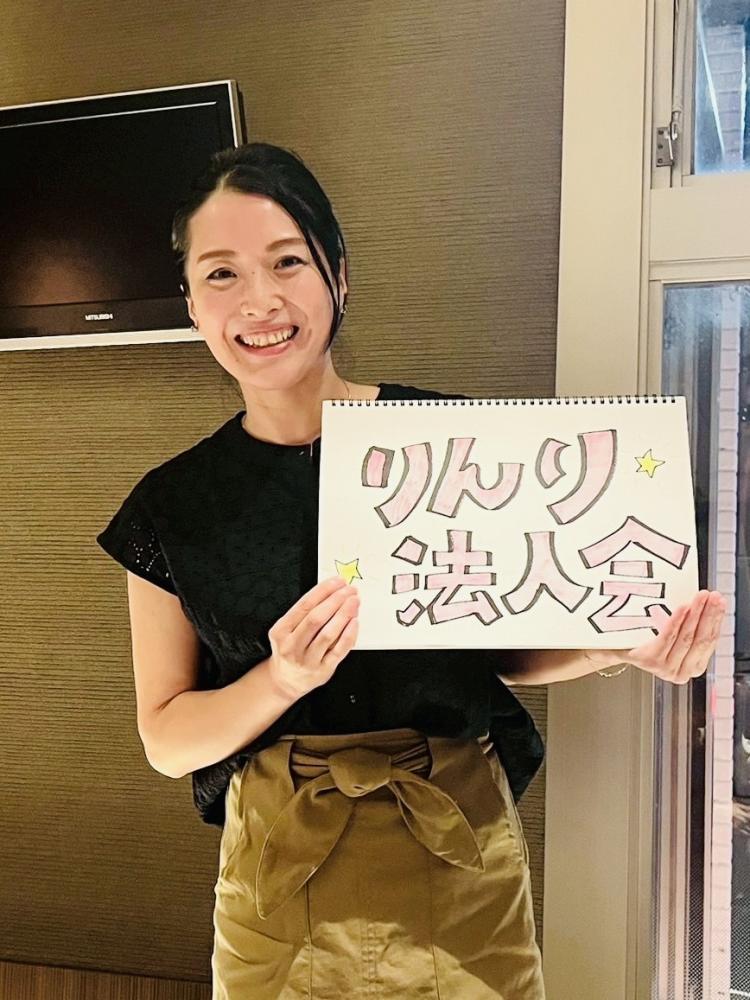 MITSUBISHI
りんり
法人会